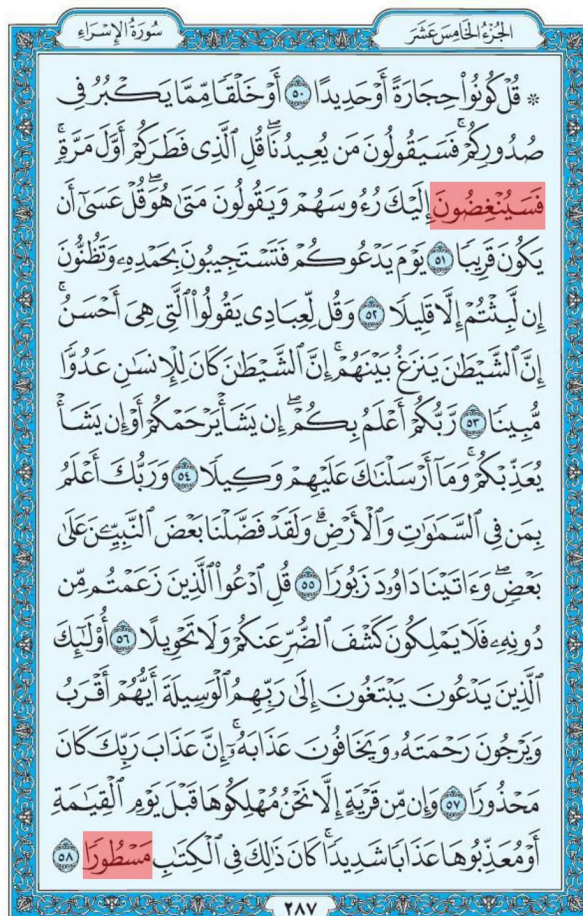 الجُزْءُ الخَامِسَ عَشَرَ
سُورَةُ الإِسْرَاءِ
۞ قُلْ كُونُوا۟ حِجَارَةً أَوْ حَدِيدًا ٥٠ أَوْ خَلْقًا مِّمَّا يَكْبُرُ فِى
صُدُورِكُمْ ۚ فَسَيَقُولُونَ مَن يُعِيدُنَا ۖ قُلِ ٱلَّذِى فَطَرَكُمْ أَوَّلَ مَرَّةٍ ۚ
فَسَيُنْغِضُونَ إِلَيْكَ رُءُوسَهُمْ وَيَقُولُونَ مَتَىٰ هُوَ ۖ قُلْ عَسَىٰٓ أَن
يَكُونَ قَرِيبًا ٥١ يَوْمَ يَدْعُوكُمْ فَتَسْتَجِيبُونَ بِحَمْدِهِۦ وَتَظُنُّونَ
إِن لَّبِثْتُمْ إِلَّا قَلِيلًا ٥٢ وَقُل لِّعِبَادِى يَقُولُوا۟ ٱلَّتِى هِىَ أَحْسَنُ ۚ
إِنَّ ٱلشَّيْطَٰنَ يَنزَغُ بَيْنَهُمْ ۚ إِنَّ ٱلشَّيْطَٰنَ كَانَ لِلْإِنسَٰنِ عَدُوًّا
مُّبِينًا ٥٣ رَّبُّكُمْ أَعْلَمُ بِكُمْ ۖ إِن يَشَأْ يَرْحَمْكُمْ أَوْ إِن يَشَأْ
يُعَذِّبْكُمْ ۚ وَمَآ أَرْسَلْنَٰكَ عَلَيْهِمْ وَكِيلًا ٥٤ وَرَبُّكَ أَعْلَمُ
بِمَن فِى ٱلسَّمَٰوَٰتِ وَٱلْأَرْضِ ۗ وَلَقَدْ فَضَّلْنَا بَعْضَ ٱلنَّبِيِّـۧنَ عَلَىٰ
بَعْضٍ ۖ وَءَاتَيْنَا دَاوُۥدَ زَبُورًا ٥٥ قُلِ ٱدْعُوا۟ ٱلَّذِينَ زَعَمْتُم مِّن
دُونِهِۦ فَلَا يَمْلِكُونَ كَشْفَ ٱلضُّرِّ عَنكُمْ وَلَا تَحْوِيلًا ٥٦ أُو۟لَٰٓئِكَ
ٱلَّذِينَ يَدْعُونَ يَبْتَغُونَ إِلَىٰ رَبِّهِمُ ٱلْوَسِيلَةَ أَيُّهُمْ أَقْرَبُ
وَيَرْجُونَ رَحْمَتَهُۥ وَيَخَافُونَ عَذَابَهُۥٓ ۚ إِنَّ عَذَابَ رَبِّكَ كَانَ
مَحْذُورًا ٥٧ وَإِن مِّن قَرْيَةٍ إِلَّا نَحْنُ مُهْلِكُوهَا قَبْلَ يَوْمِ ٱلْقِيَٰمَةِ
أَوْ مُعَذِّبُوهَا عَذَابًا شَدِيدًا ۚ كَانَ ذَٰلِكَ فِى ٱلْكِتَٰبِ مَسْطُورًا ٥٨
٢٨٧